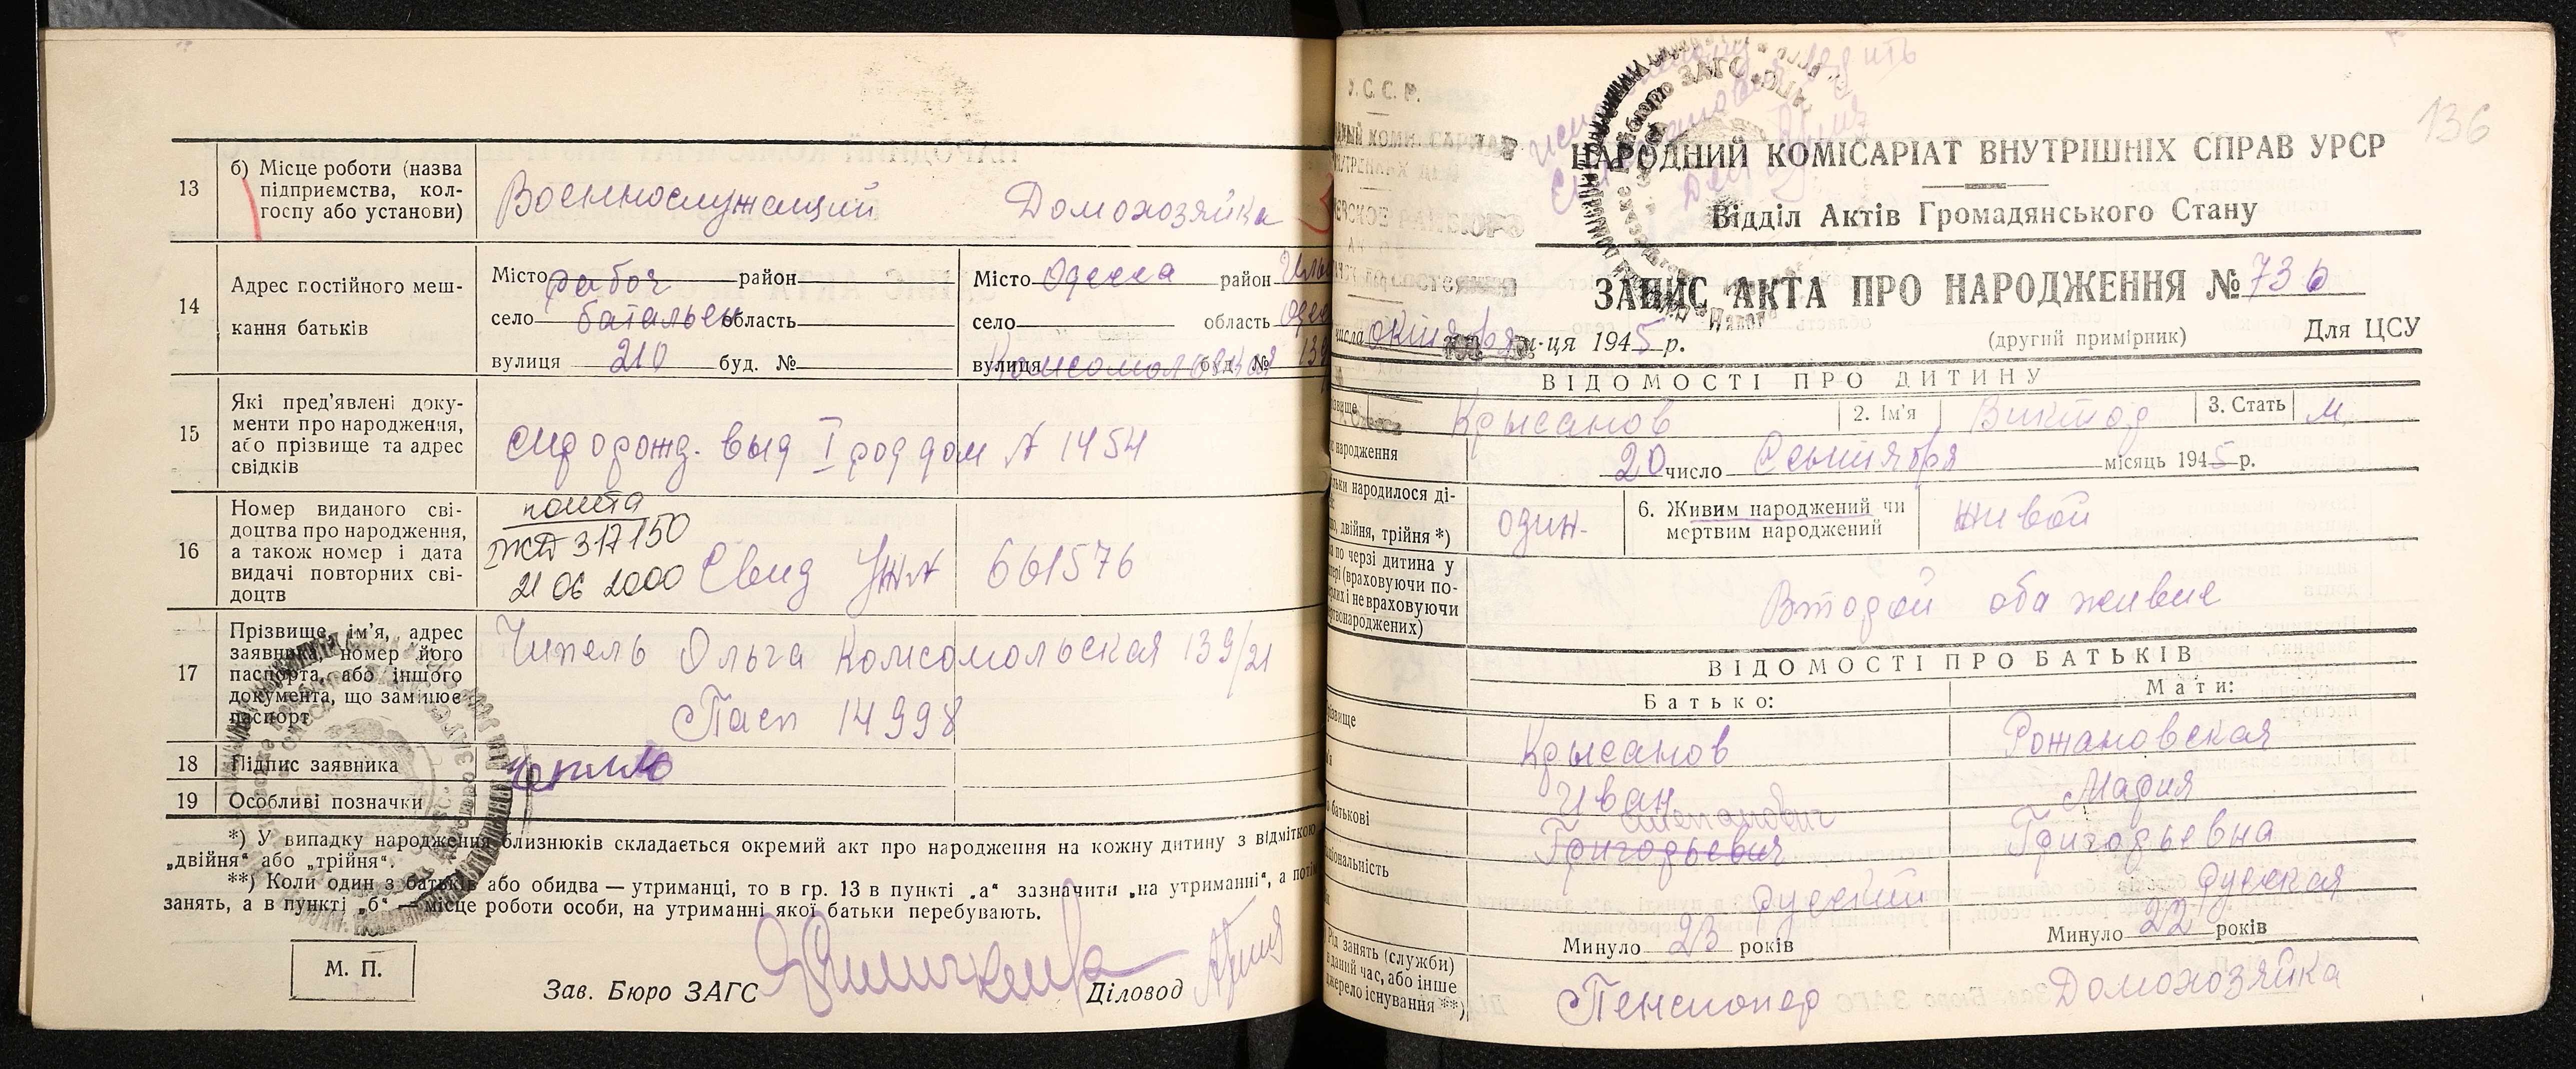 13
б) Місце роботи (назва
підприємства, кол-
госпу або установи)
Военнослужащий
Домохозяйка
14
Адрес постійного меш-
кання батьків
Місто рабоч район
село батальен область
вулиця 210 буд. №
Місто Одесса район
село область
вулиця Комсомольская буд. № 139
15
Які пред'явлені доку-
менти про народження,
або прізвище та адрес
свідків
выд I род дом № 1454
16
Номер виданого сві-
доцтва про народження,
а також номер і дата
видачі повторних сві-
доцтв
317150
21 06 2000
Свид УЖ № 661576
17
Прізвище, ім'я, адрес
заявника, номер його
паспорта, або іншого
документа, що замінює
паспорт
Чипель Ольга Комсомольская 139/21
Пасп 14998
18
Підпис заявника
19
Особливі позначки
*) У випадку народження близнюків складається окремий акт про народження на кожну дитину з відміткою
„двійня“ або „трійня“.
**) Коли один з батьків або обидва — утриманці, то в гр. 13 в пункті „а“ зазначити „на утриманні“, а потім
занять, а в пункті „б“ — місце роботи особи, на утриманні якої батьки перебувають.
М. П.
Зав. Бюро ЗАГС
Діловод
136
НАРОДНИЙ КОМІСАРІАТ ВНУТРІШНІХ СПРАВ УРСР
Відділ Актів Громадянського Стану
ЗАПИС АКТА ПРО НАРОДЖЕННЯ № 736
числа октября м-ця 1945 р.
(другий примірник)
Для ЦСУ
ВІДОМОСТІ ПРО ДИТИНУ
Крысанов
2. Ім'я
Виктор
3. Стать
м.
народження
20 число Сентября місяць 1945 р.
народилося ді-
двійня, трійня *)
один.
6. Живим народжений чи
мертвим народжений
живой
по черзі дитина у
(враховуючи по-
і не враховуючи
Второй оба живые
ВІДОМОСТІ ПРО БАТЬКІВ
Батько:
Мати:
Крысанов
Рожановская
Иван
Мария
Степанович
Григорьевич
Григорьевна
русский
русская
Минуло 23 років
Минуло 22 років
Рід занять (служби)
в даний час, або інше
джерело існування **)
Пенсионер
Домохозяйка